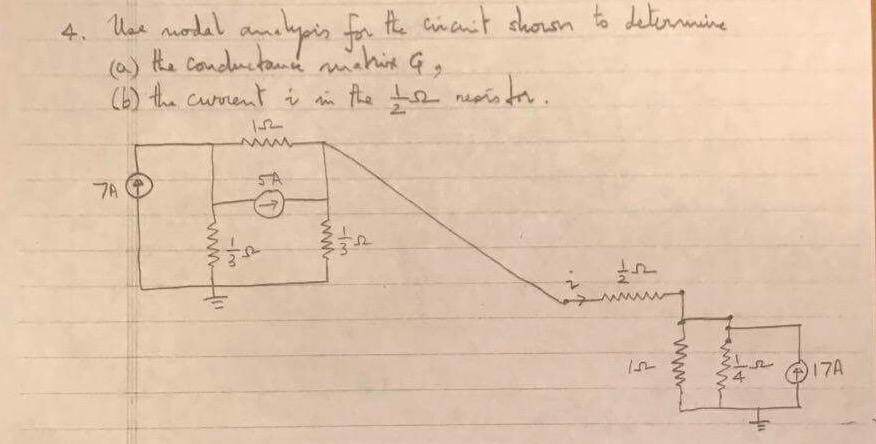 4. Use nodal analysis for the circuit shown to determine
(a) the conductance matrix G,
(b) the current i in the 1/2 Ω resistor.
1Ω
7A
5A
1/3 Ω
1/3 Ω
i
1/2 Ω
1Ω
1/4 Ω
17A